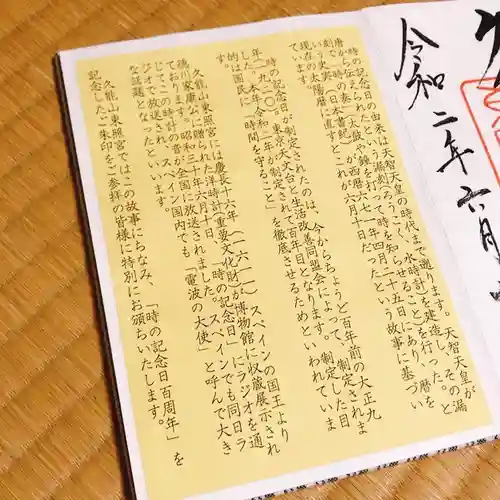 令和二年六月
時の記念日の由来は天智天皇の時代まで遡ります。天智天皇が
唐から伝わった漏
刻（日本書紀
て時を知らせ
四月二十五日
現在の太陽暦に直すと、これが西暦六月十日だったという故事に基づい
ています。
時の記念日が制定されたのは、今からちょうど百年前の大正九
年（一九二〇）、東京天文台と生活改善同盟会によって、制定されま
した。本年（令和二年）が制定されて百年目となります。制定した目
的は、国民に「時間を守ること」を徹底させるためといわれていま
す。
久能山東照宮には慶長十六年（一六一一）、スペインの国王より
徳川家康公に贈られた洋時計（重要文化財）が博物館に収蔵展示され
ております。昭和三十年六月十日、「時の記念日」にラジオを通
じて、この時計の音が全国に放送されました。スペインでも同日ラ
ジオで放送され、スペイン国内でも「電波の大使」と呼んで大き
な話題となったといいます。
久能山東照宮ではこの故事にちなみ、「時の記念日百周年」を
記念したご朱印をご参拝の皆様に特別にお頒ちいたします。